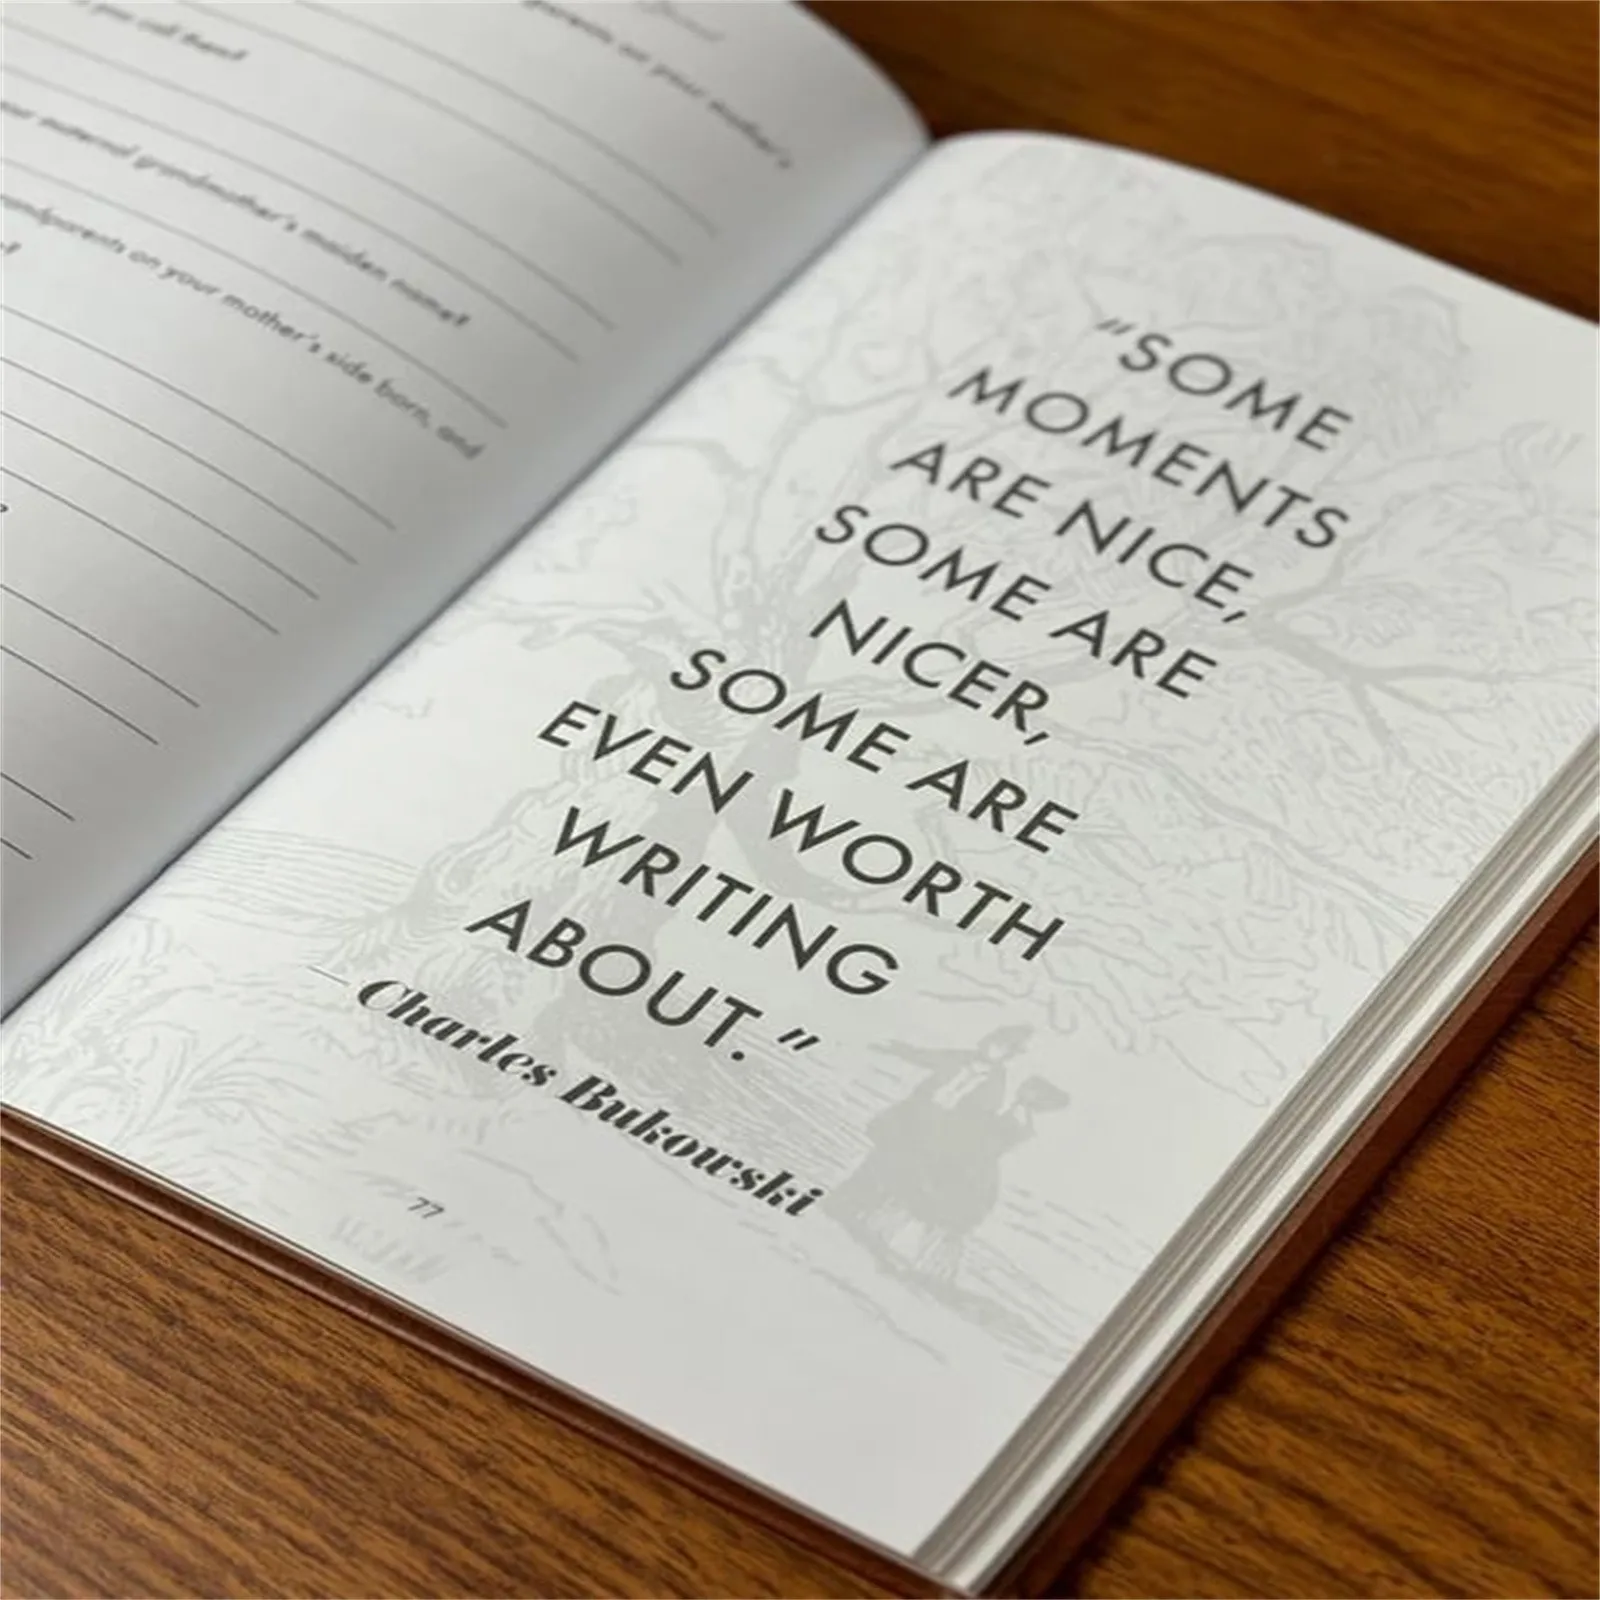 you call them?
parents on your mother's
maternal grandmother's maiden name?
grandparents on your mother's side born, and
"SOME
MOMENTS
ARE NICE,
SOME ARE
NICER,
SOME ARE
EVEN WORTH
WRITING
ABOUT."
—Charles Bukowski
77